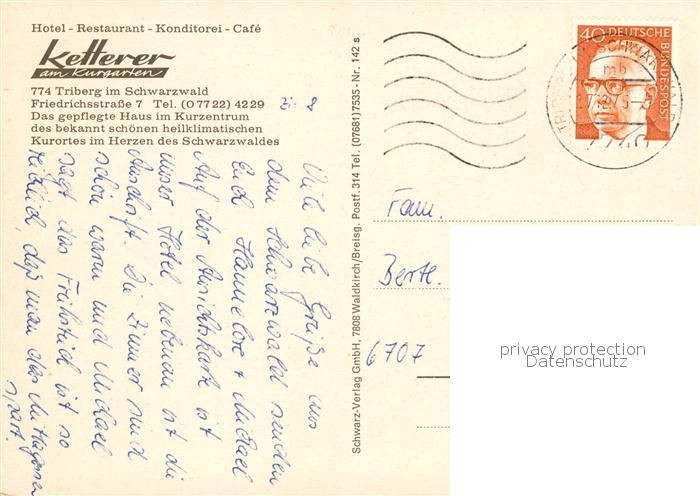 Hotel - Restaurant - Konditorei - Café
Ketterer
am Kurgarten
774 Triberg im Schwarzwald
Friedrichsstraße 7 Tel. (07722) 4229
Das gepflegte Haus im Kurzentrum
des bekannt schönen heilklimatischen
Kurortes im Herzen des Schwarzwaldes
Viele liebe Grüße aus
dem Schwarzwald senden
Euch Hannelore + Michael
Auf der Ansichtskarte ist
unser Hotel nebenan ist die
Anschrift. Die Zimmer sind
schön warm und Michael
sagt das Frühstück ist so
reichlich, daß man das Mittagessen
spart.
Schwarz-Verlag GmbH, 7808 Waldkirch/Breisg. Postf. 314 Tel. (07681) 7535 - Nr. 142 s
40 DEUTSCHE
BUNDESPOST
TRIBERG SCHWARZWALD
mb
7740
Fam.
Berte.
6707
privacy protection
Datenschutz